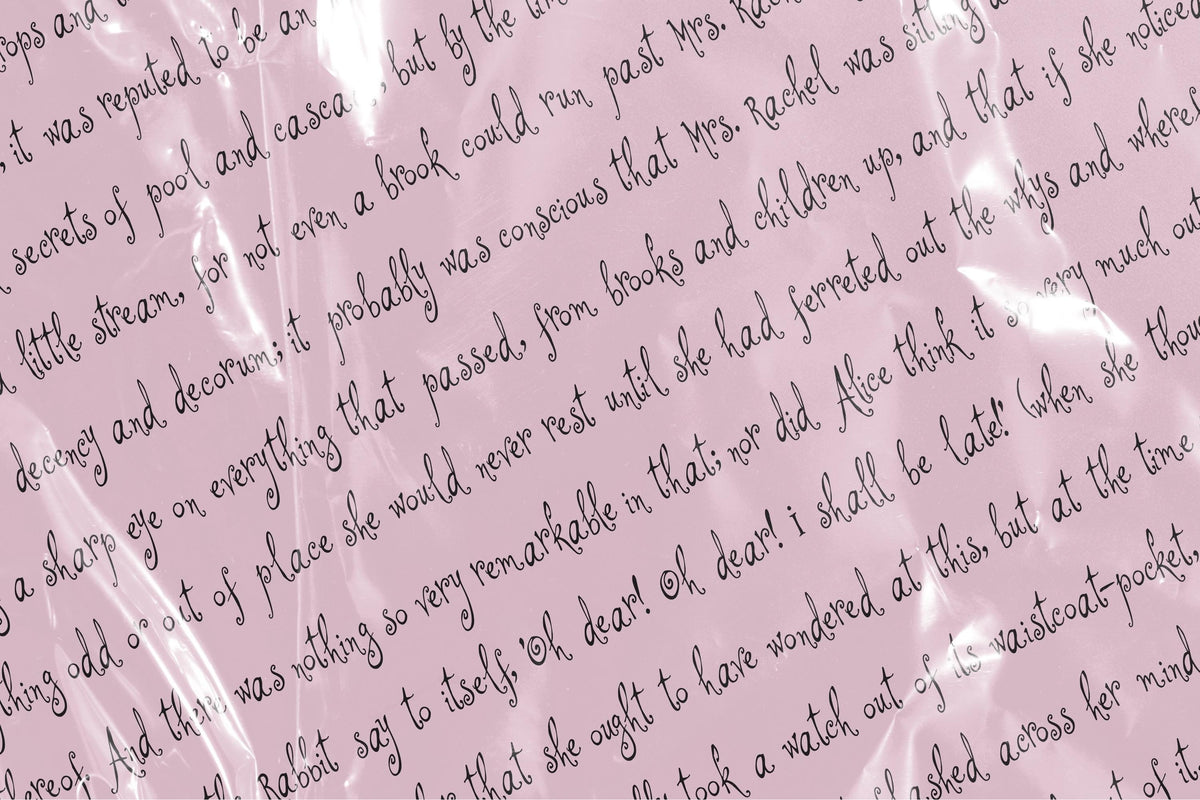 rops and
, it was reputed to be an
secrets of pool and cascade, but by the
little stream, for not even a brook could run past Mrs.
decency and decorum; it probably was conscious that Mrs. Rachel was sitting
a sharp eye on everything that passed, from brooks and children up, and that if she noticed
thing odd or out of place she would never rest until she had ferreted out the whys and
thereof. And there was nothing so very remarkable in that; nor did Alice think it so very much out
the Rabbit say to itself, 'Oh dear! Oh dear! i shall be late!' (when she
that she ought to have wondered at this, but at the time
took a watch out of its waistcoat-pocket,
lashed across her mind
of it